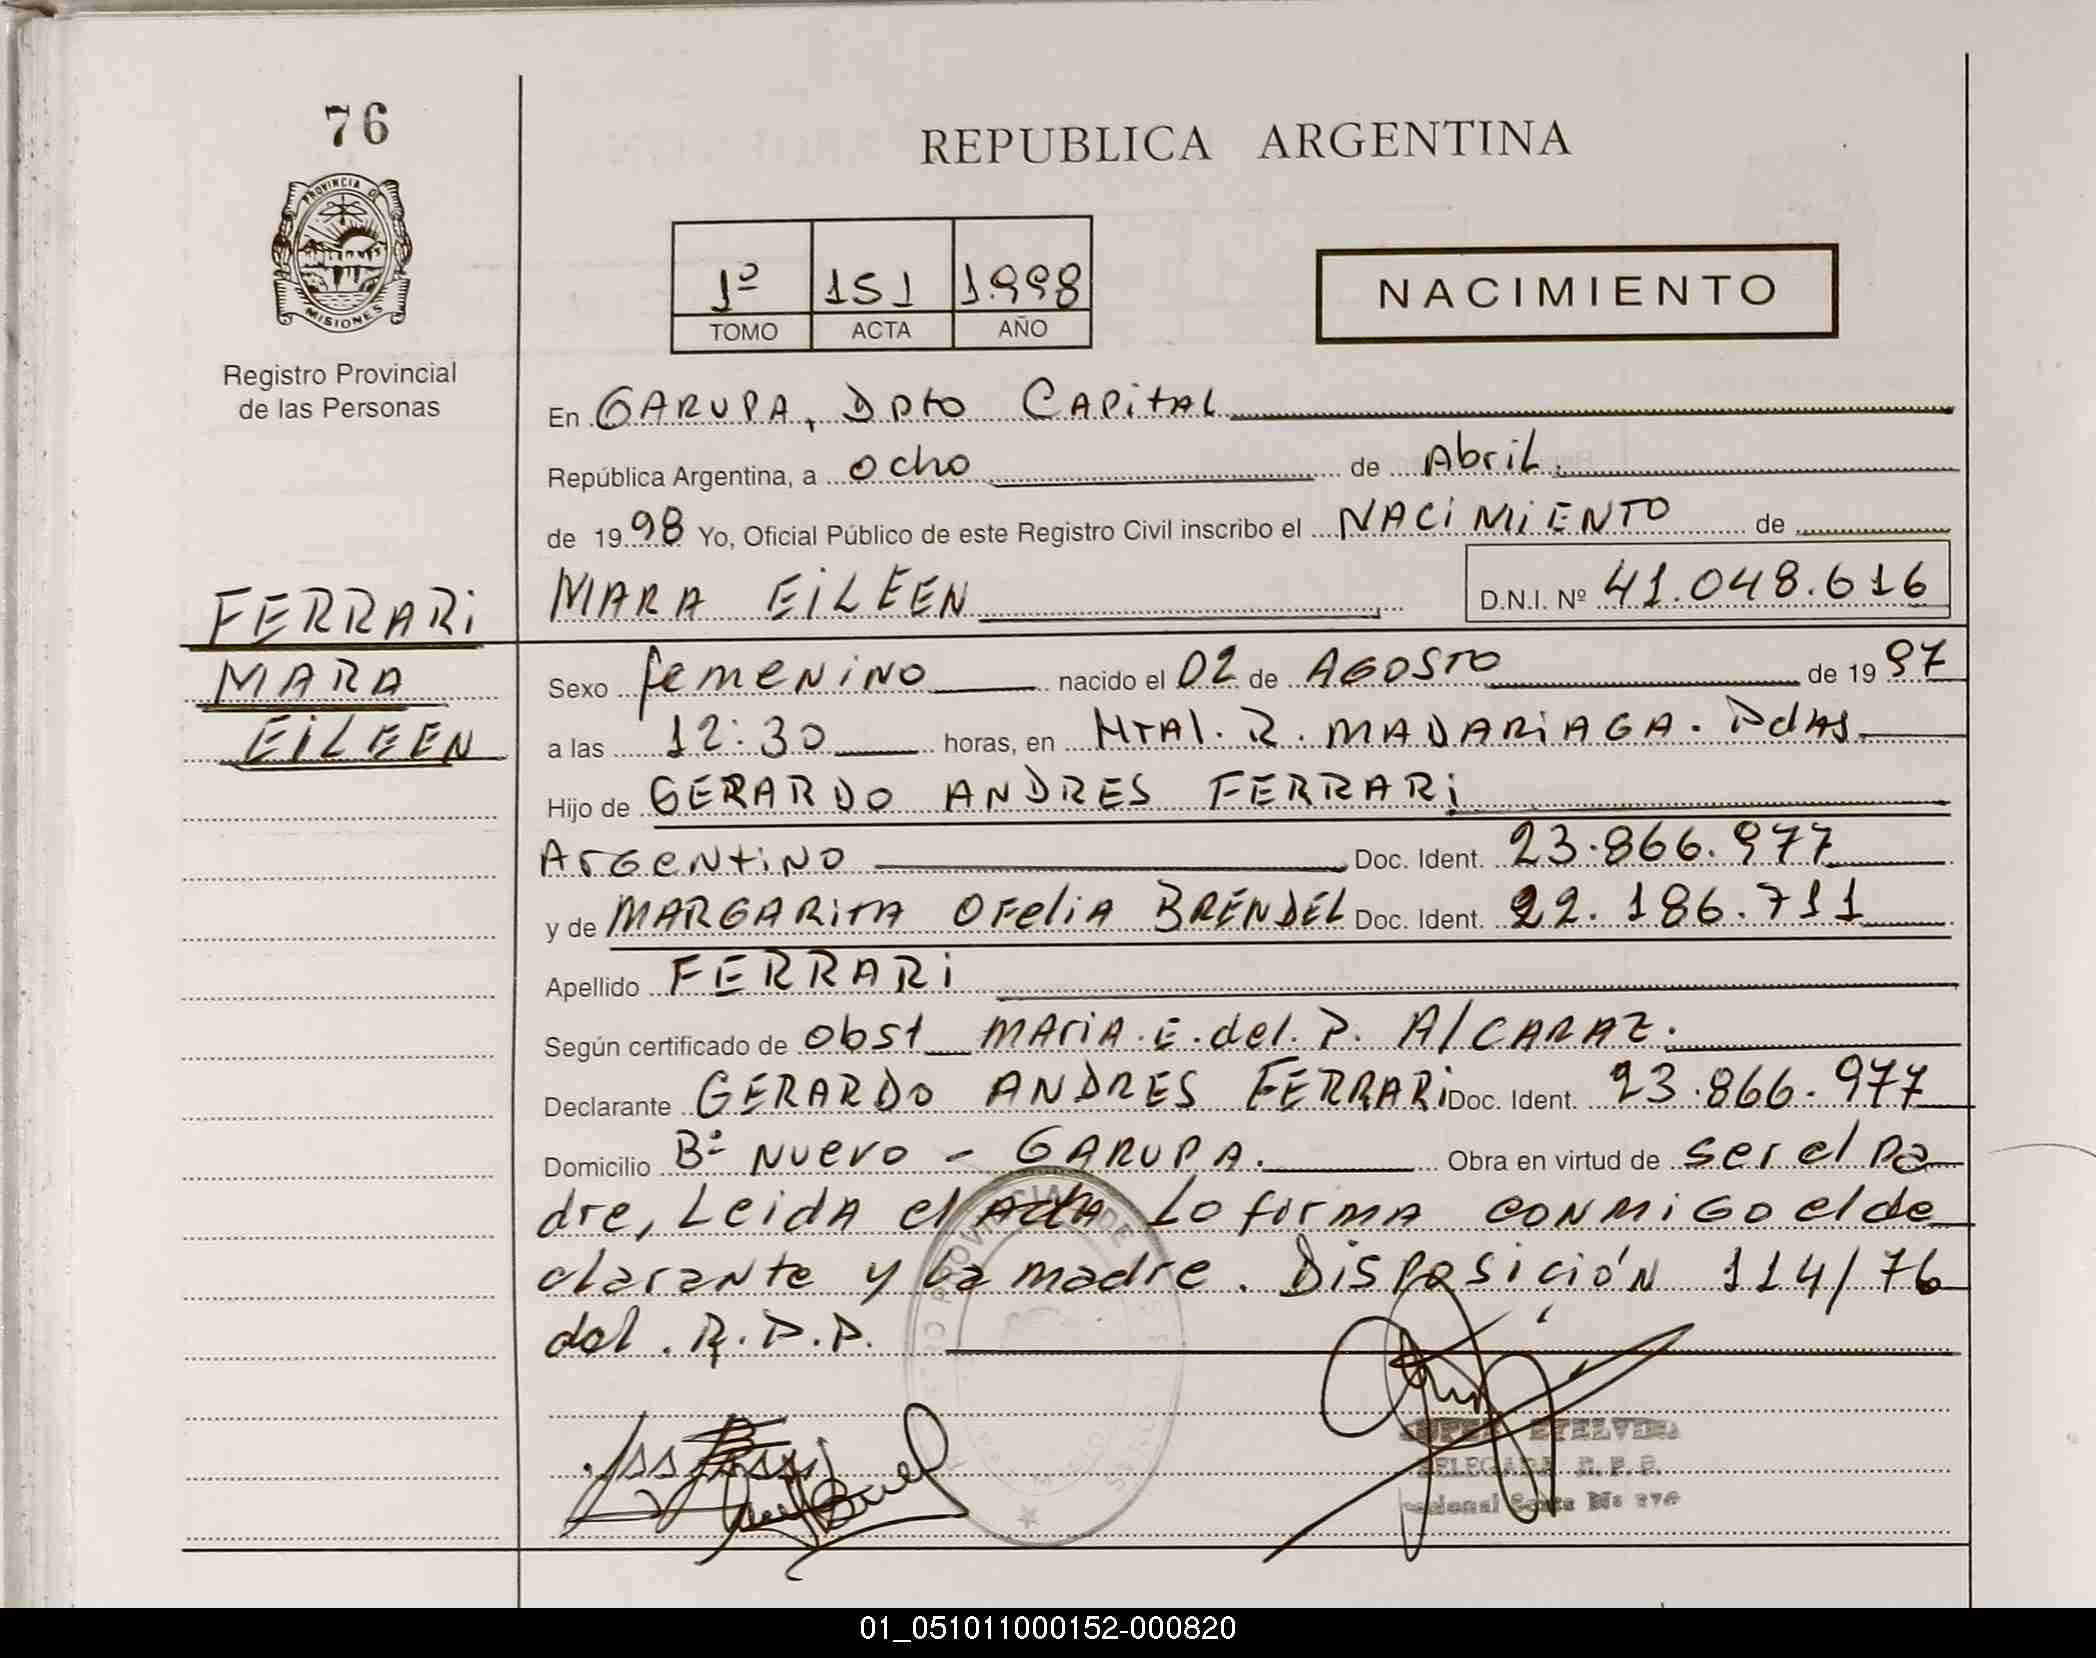 76
PROVINCIA DE
MISIONES
Registro Provincial
de las Personas
REPUBLICA ARGENTINA
1º 151 1.998
TOMO ACTA AÑO
NACIMIENTO
En GARUPA, Dpto CAPITAL
República Argentina, a ocho de Abril.
de 1998 Yo, Oficial Público de este Registro Civil inscribo el NACIMIENTO de
MARA EILEEN D.N.I. Nº 41.048.616
FERRARI
MARA
EILEEN
Sexo femenino nacido el 02 de AGOSTO de 1997
a las 12:30 horas, en Htal. R. MADARIAGA. Pdas.
Hijo de GERARDO ANDRES FERRARI
Argentino Doc. Ident. 23.866.977
y de MARGARITA OFELIA BRENDEL Doc. Ident. 22.186.711
Apellido FERRARI
Según certificado de obst MARIA.E.del.P. AlCARAZ.
Declarante GERARDO ANDRES FERRARI Doc. Ident. 23.866.977
Domicilio Bº NUEVO - GARUPA. Obra en virtud de ser el pa
dre, Leida el Acta Lo firma conmigo el de
clarante y la madre. Disposición 114/76
del R.P.P.
PROVINCIAL DE
01_051011000152-000820